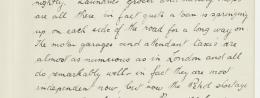 nightly. Launderer grocer and
are all there in fact quite a town is springing
up on each side of the road for a long way on
the motor garages and attendant taxis are
almost as numerous as in London and all
do remarkably well - in fact they are most
independent now, but now the Petrol shortage